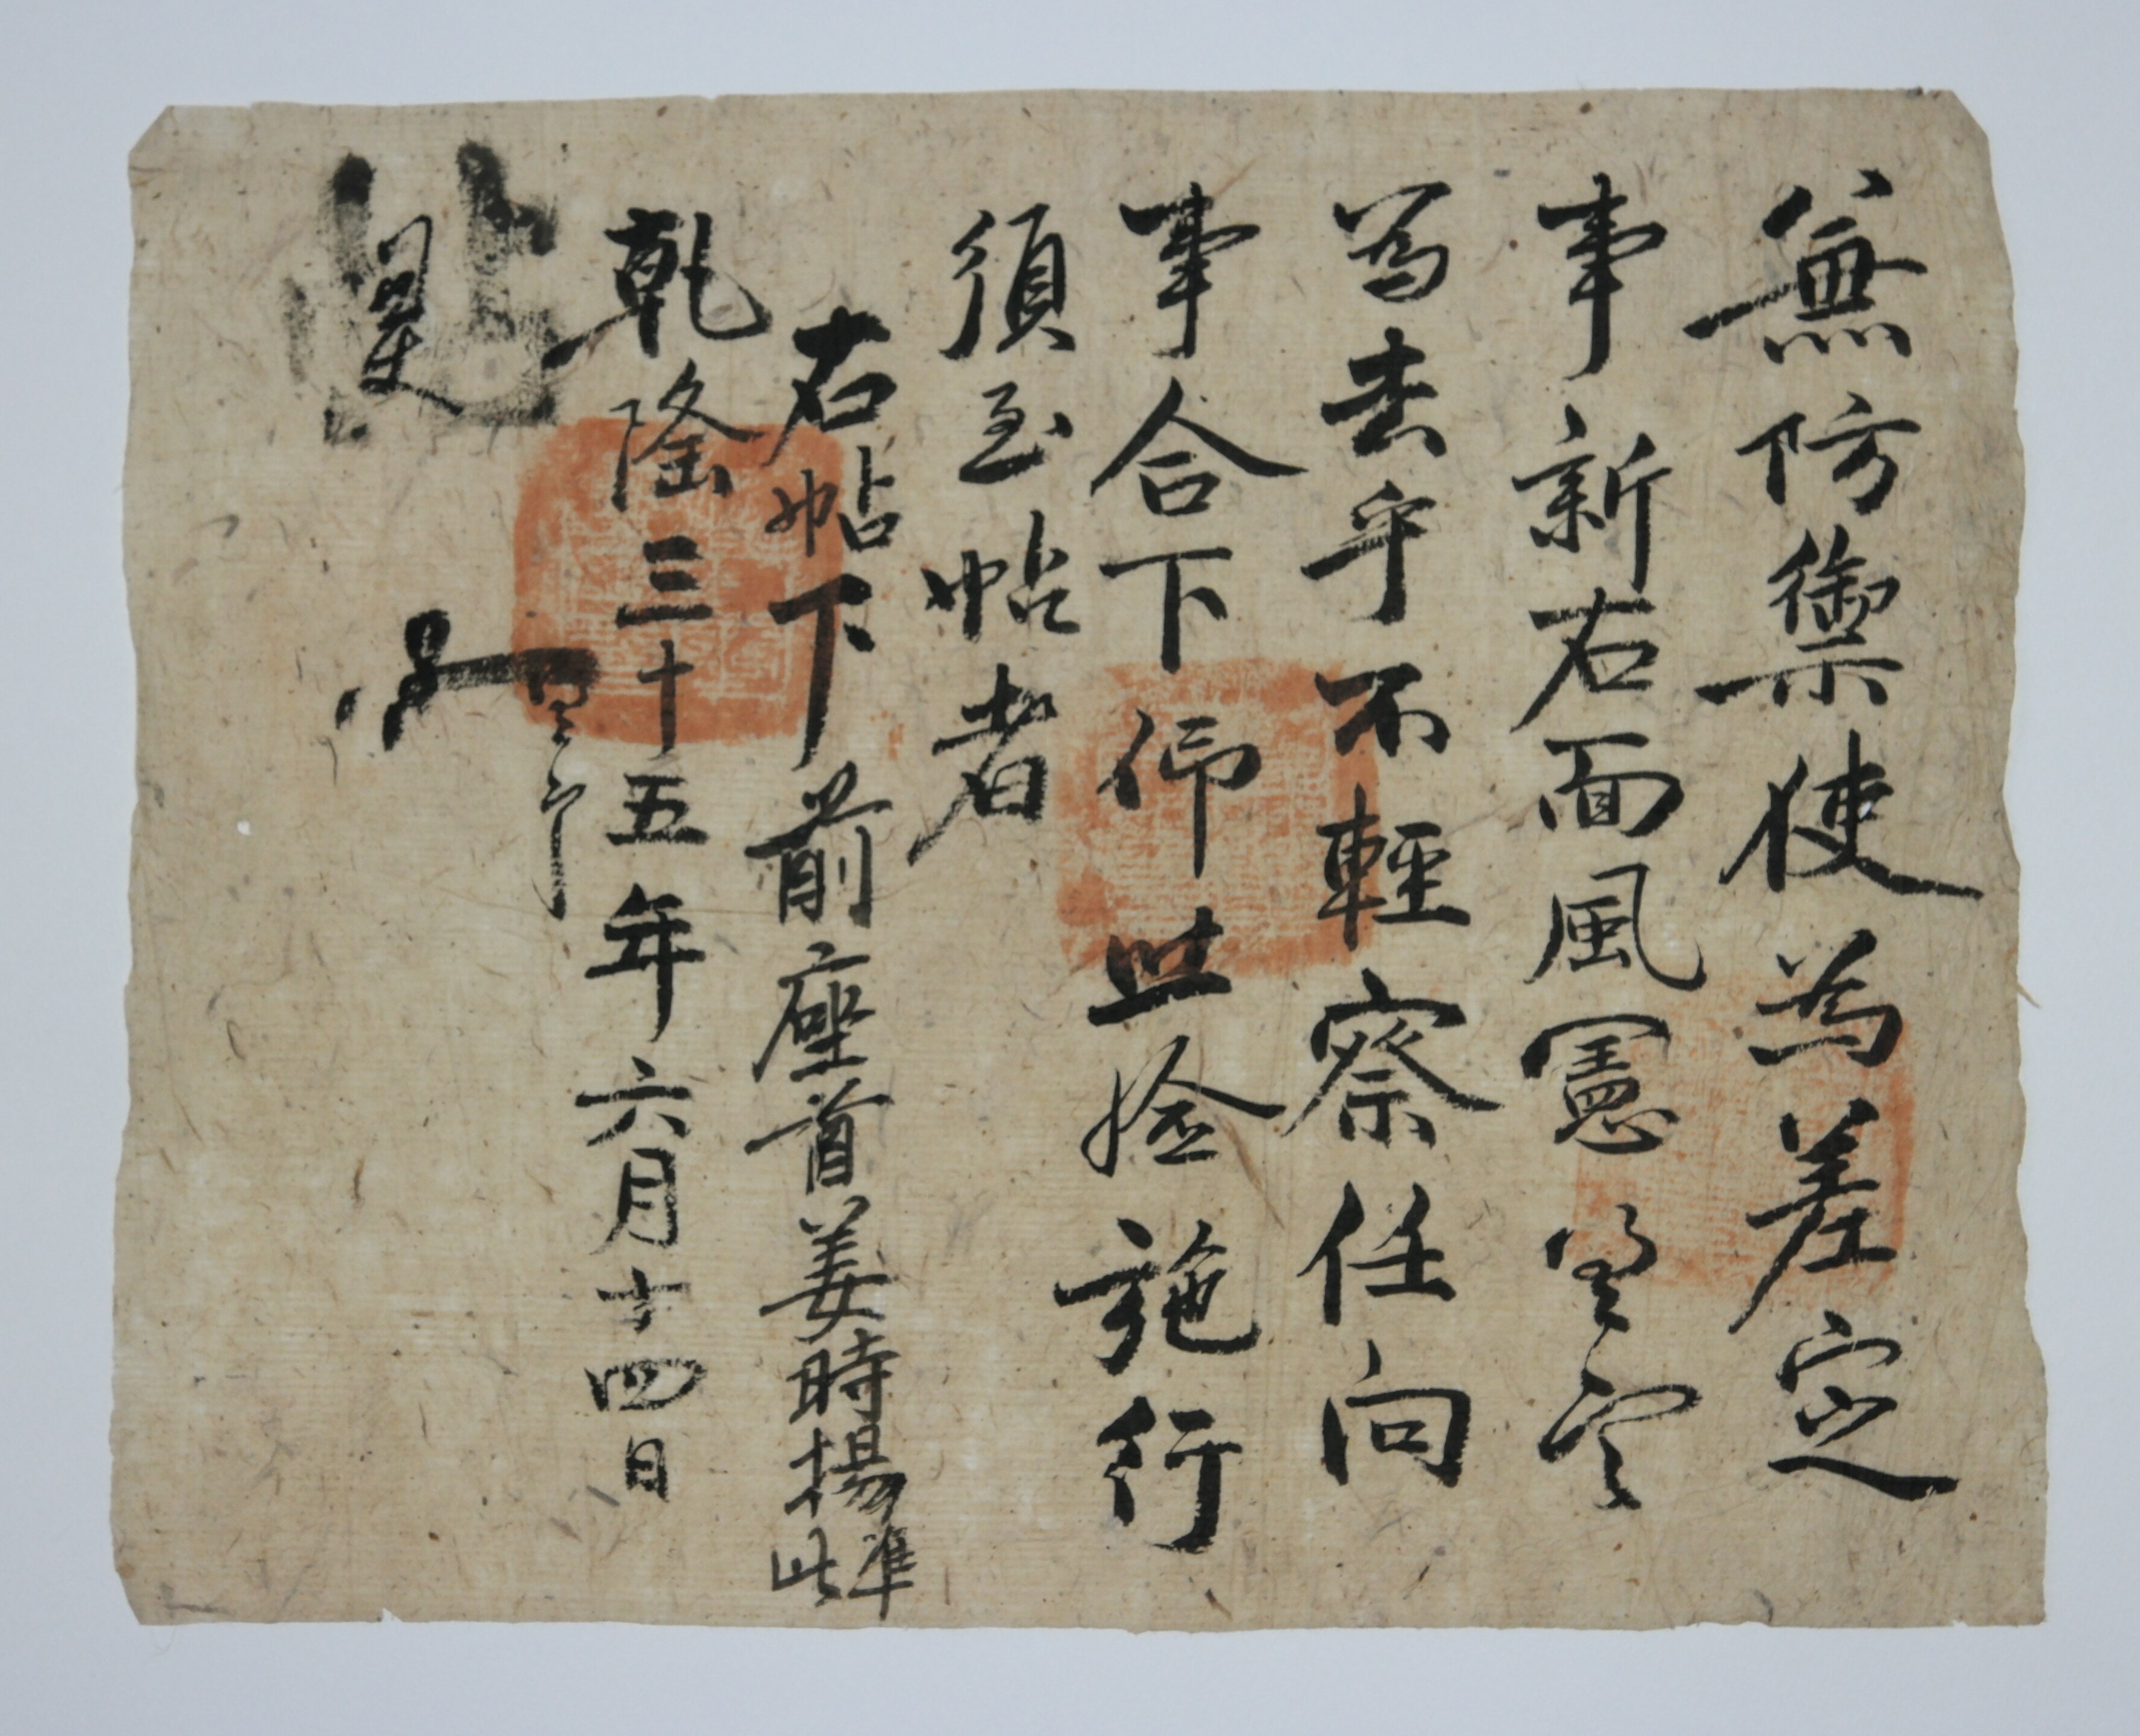 兼防禦使爲差定
事新右面風憲
爲去乎不輕察任向
事合下仰照驗施行
須至帖者
右帖下前座首姜時揚準此
乾隆三十五年六月十四日